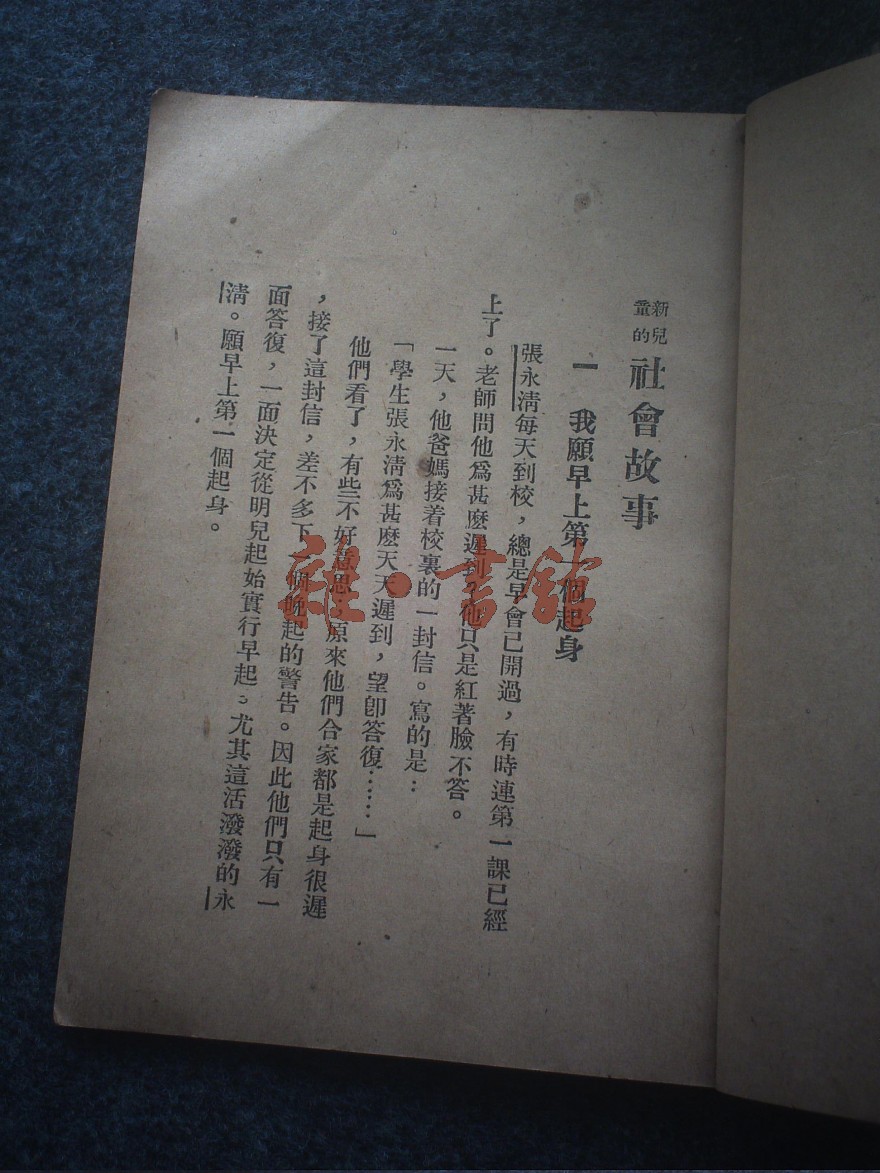 新兒童的
社會故事
一　我願早上第一個起身
張永淸每天到校，總是早會已開過，有時連第一課已經
上了。老師問他爲甚麽遲到？他只是紅著臉不答。
一天，他爸媽接着校裏的一封信。寫的是：
「學生張永淸爲甚麽天天遲到，望卽答復……」
他們看了，有些不好意思，原來他們合家都是起身很遲
，接了這封信，差不多下一個晚起的警告。因此他們只有一
面答復，一面決定從明兒起始實行早起。尤其這活潑潑的永
淸。願早上第一個起身。
雜·書館